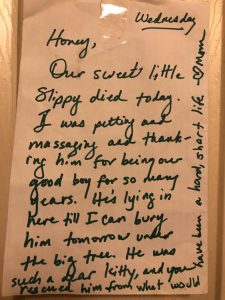 Wednesday
Honey,
Our sweet little
Slippy died today.
I was petting and
massaging and thank-
ing him for being our
good boy for so many
years. He's lying in
here till I can bury
him tomorrow under
the big tree. He was
such a dear kitty, and you
rescued him from what would
have been a hard, short life ♡Mom